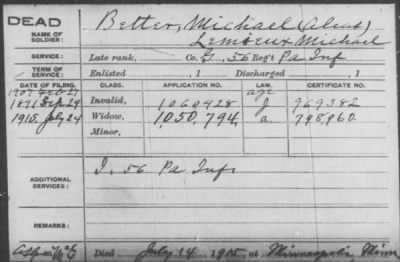 DEAD
NAME OF SOLDIER:
Better, Michael (Alias)
Lemieux Michael
SERVICE:
Late rank, Co. G, 56 Reg't Pa Inf
TERM OF SERVICE:
Enlisted , 1 Discharged , 1
DATE OF FILING. CLASS. APPLICATION NO. LAW. CERTIFICATE NO.
1907 Feb 27 age
1891 Sep 29 Invalid, 1060428 J 969382
1915 July 24 Widow, 1050,794 a. 798,960
Minor,
ADDITIONAL SERVICES:
I. 56 Pa Inf
REMARKS:
Died July 14 1915, at Minneapolis Minn